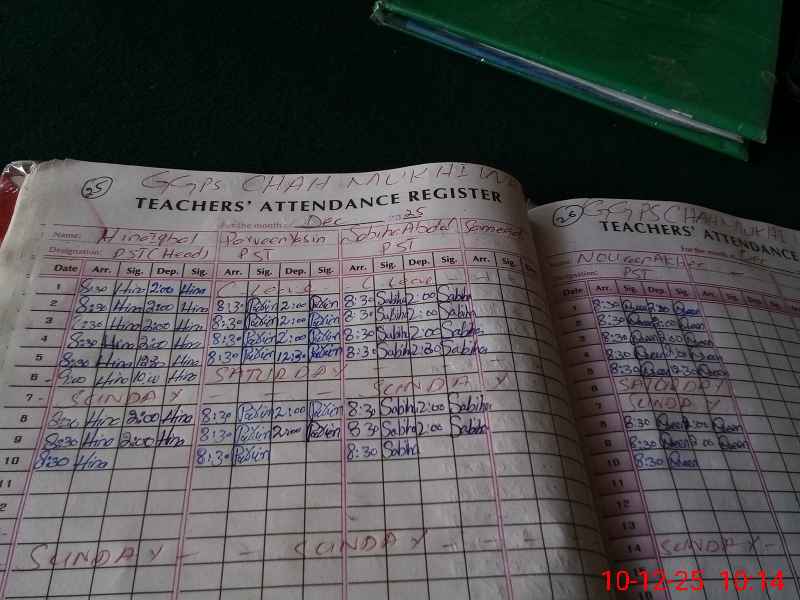 25 GGPS CHAH MUKHIW
TEACHERS' ATTENDANCE REGISTER
For the month of Dec 2025
Name: Hina Iqbal Parveen Yasin Sabiha Abdal
Designation: PST (Head) PST PST
Date Arr. Sig. Dep. Sig. Arr. Sig. Dep. Sig. Arr. Sig. Dep. Sig. Arr. Sig.
1 8:30 Hina 2:00 Hina C Leave C Leave
2 8:30 Hina 2:00 Hina 8:30 Parveen 2:00 Parveen 8:30 Sabiha 2:00 Sabiha
3 8:30 Hina 2:00 Hina 8:30 Parveen 2:00 Parveen 8:30 Sabiha 2:00 Sabiha
4 8:30 Hina 2:00 Hina 8:30 Parveen 2:00 Parveen 8:30 Sabiha 2:00 Sabiha
5 8:30 Hina 12:30 Hina 8:30 Parveen 12:30 Parveen 8:30 Sabiha 12:30 Sabiha
6 9:00 Hina 10:00 Hina SATURDAY
7 SUNDAY - - - - SUNDAY
8 8:30 Hina 2:00 Hina 8:30 Parveen 2:00 Parveen 8:30 Sabiha 2:00 Sabiha
9 8:30 Hina 2:00 Hina 8:30 Parveen 2:00 Parveen 8:30 Sabiha 2:00 Sabiha
10 8:30 Hina 8:30 Parveen 8:30 Sabiha
SUNDAY - - SUNDAY - - -
26 GGPS CHAH MUKHI
TEACHERS' ATTENDANCE
For the month of Dec
Name: NOUreen AKhter
Designation: PST
Date Arr. Sig. Dep. Sig. Arr. Sig. Dep. Sig. Arr.
1 8:30 Queen 2:00 Queen
2 8:30 Queen 2:00 Queen
3 8:30 Queen 2:00 Queen
4 8:30 Queen 2:00 Queen
5 8:30 Queen 12:30 Queen
6 SATURDAY
7 SUNDAY
8 8:30 Queen 2:00 Queen
9 8:30 Queen 2:00 Queen
10 8:30 Queen
11
12
13
14 SUNDAY -
10-12-25 10:14